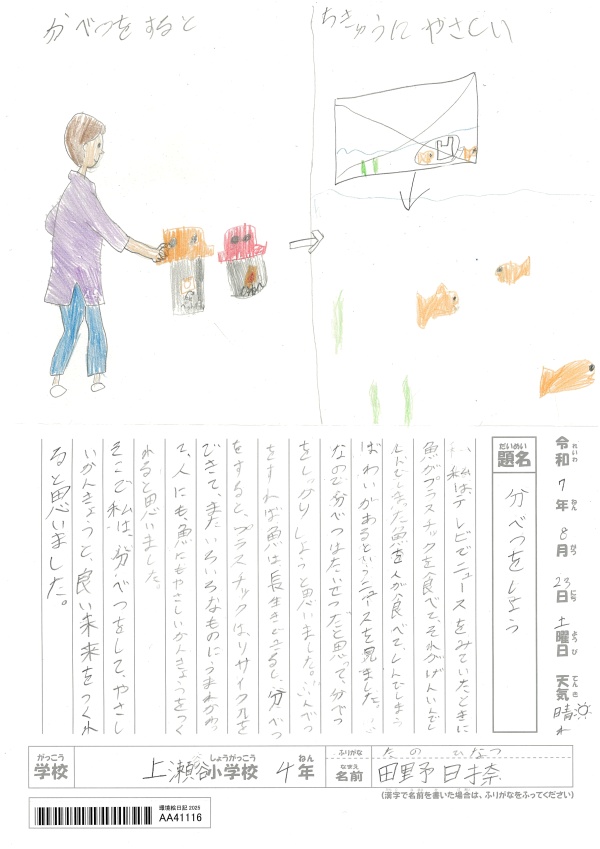 分べつをすると
ちきゅうに やさしい
令和7年8月23日土曜日 天気 晴れ
れいわ ねん がつ にち ようび てんき
だいめい
題名 分べつをしよう
私は、テレビでニュースをみていたときに
魚がプラスチックを食べて、それがげんいんでし
んでしまった魚を人が食べて、しんでしまう
ばあいがあるというニュースを見ました。
なので分べつはたいせつだと思って、分べつ
をしっかりしようと思いました。ぶんべつ
をすれば魚は長生きできるし、分べつ
をすると、プラスチックはリサイクルを
できて、またいろいろなものにうまれかわっ
て、人にも、魚にもやさしいかんきょうをつく
れると思いました。
そこで私は、分べつをして、やさし
いかんきょうと、良い未来をつくれ
ると思いました。
がっこう しょうがっこう ねん
学校 上瀬谷小学校 4年
ふりがな たの ひなつ
なまえ
名前 田野 日奈
(漢字で名前を書いた場合は、ふりがなをふってください)
環境絵日記 2025
AA41116